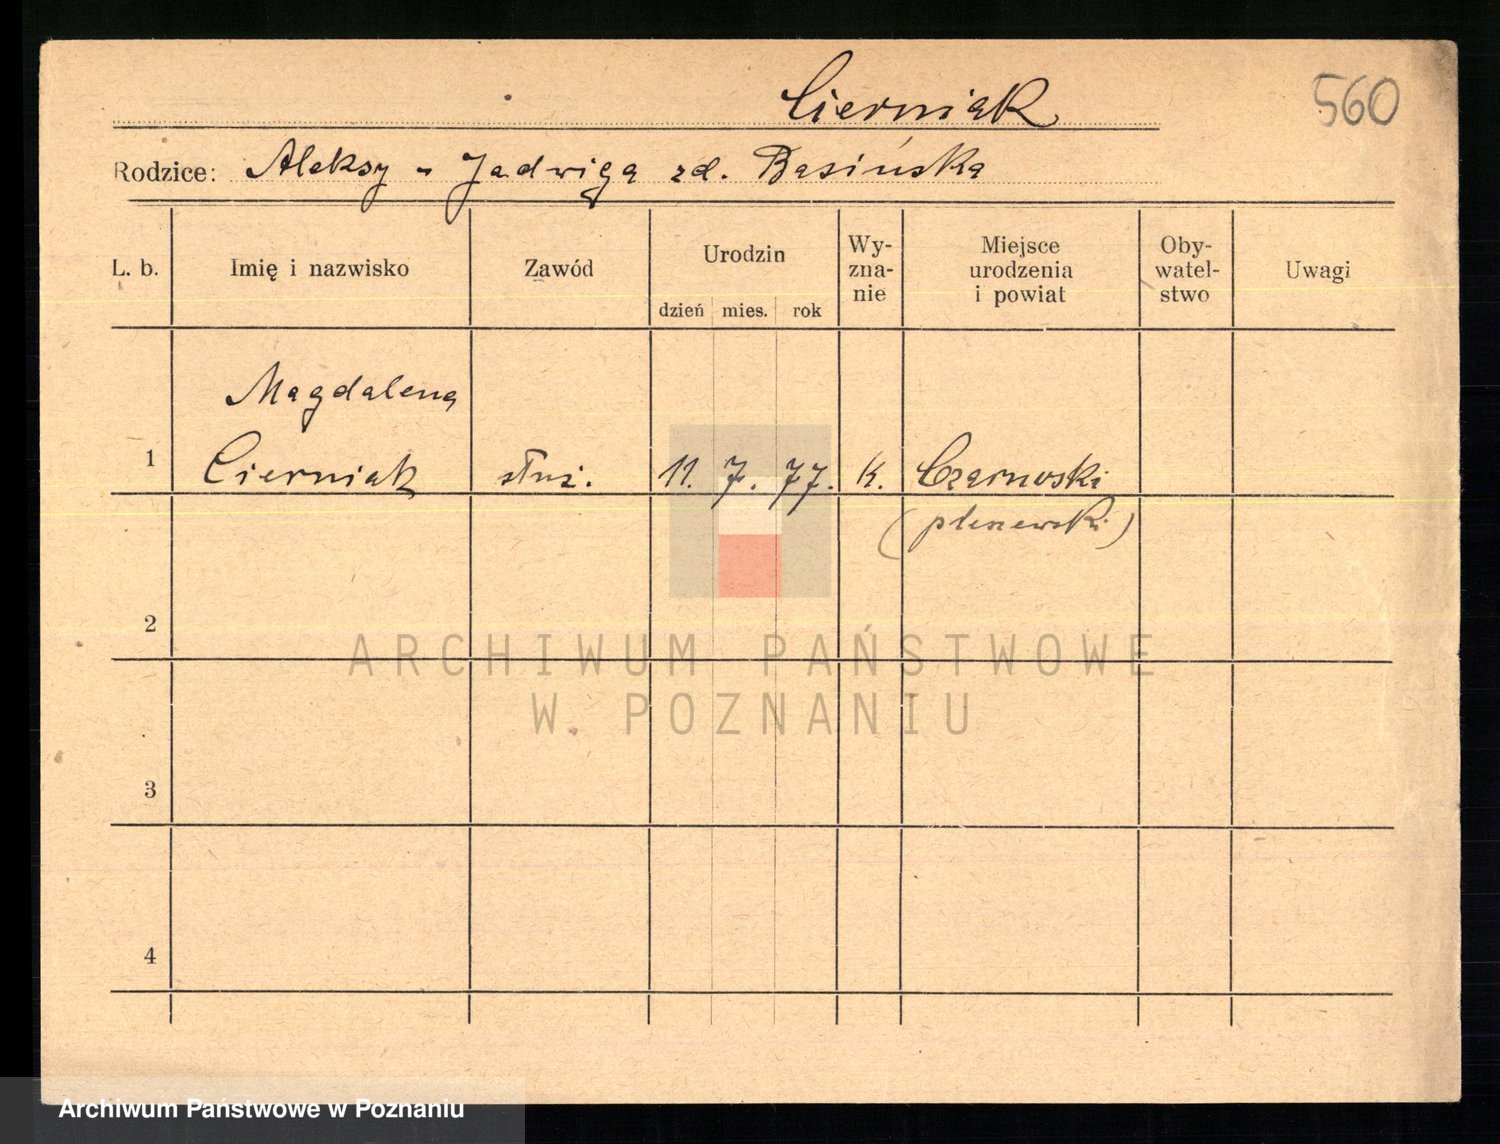 Cierniak
560
Rodzice: Aleksy - Jadwiga zd. Basińska
L. b.
Imię i nazwisko
Zawód
Urodzin
dzień mies. rok
Wy-
zna-
nie
Miejsce
urodzenia
i powiat
Oby-
watel-
stwo
Uwagi
Magdalena
1 Cierniak służ. 11. 7. 77. K. Czarnuszki
(pleszewski)
2
ARCHIWUM PAŃSTWOWE
W POZNANIU
3
4
Archiwum Państwowe w Poznaniu